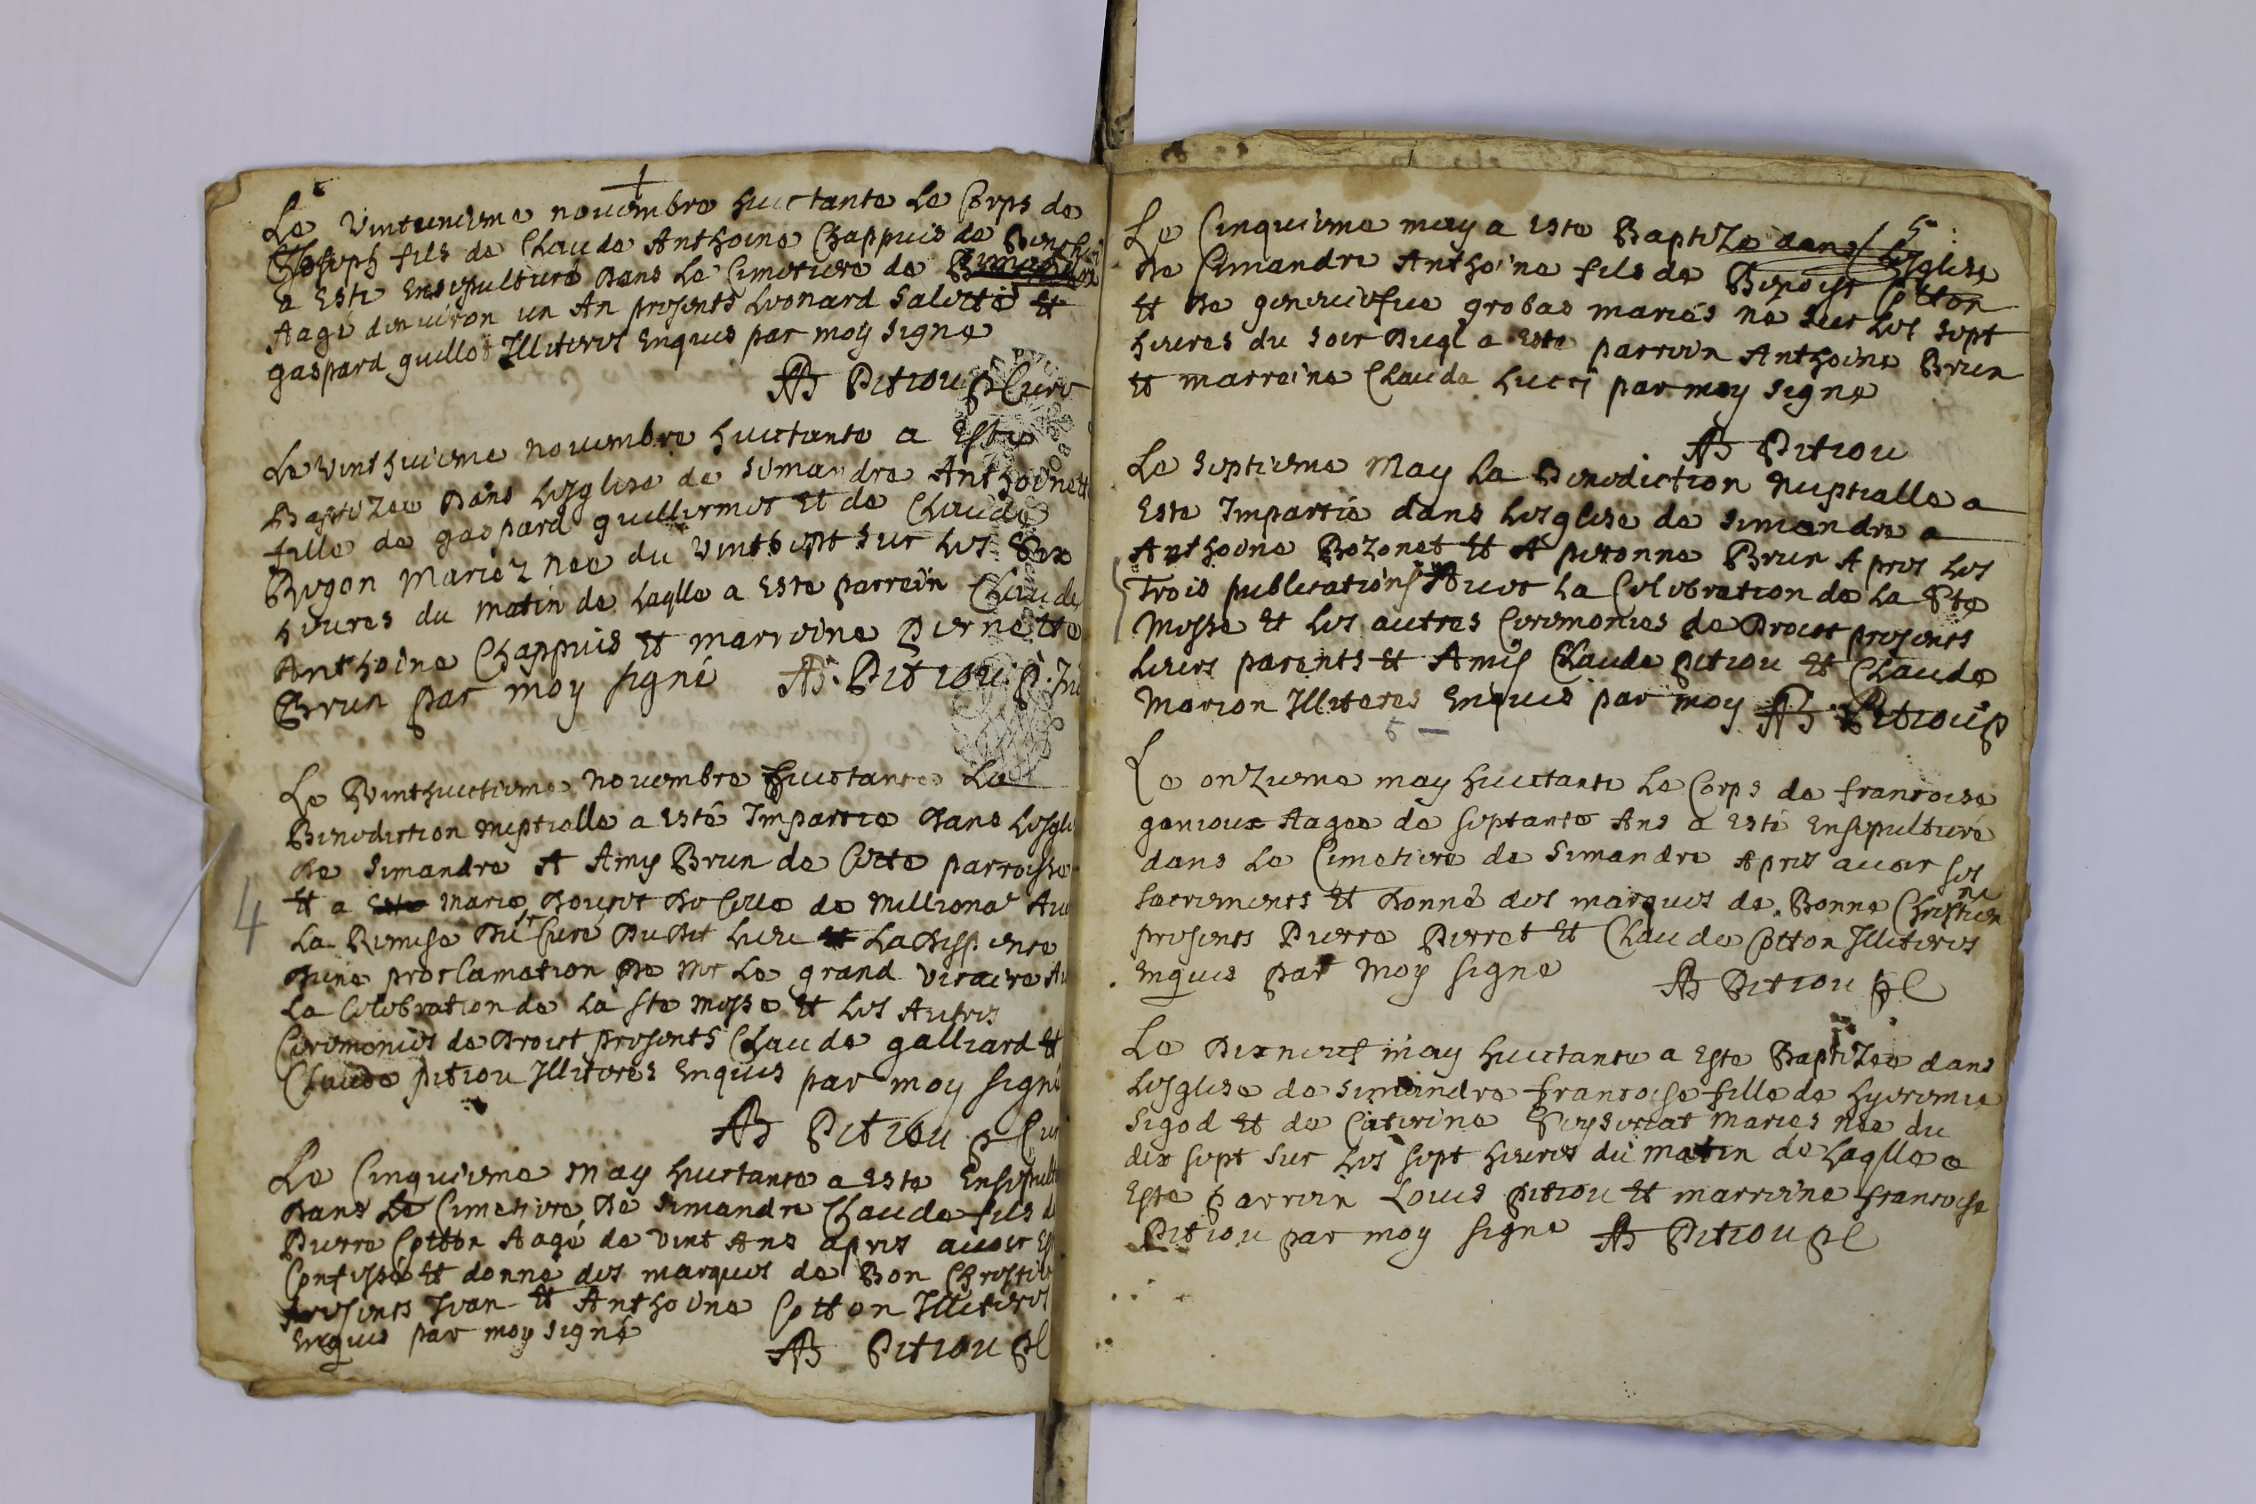 Le vintunieme novembre huictante Le Corps de
Joseph fils de Claude Anthoine Chappuis de
a Esté Ensepulturé Dans Le Cimetiere de
Aagé denviron un An presents Leonard Salette Et
gaspard guillot Illiteres Enquis par moy signe
AB Petiou p Cure
Le vinthuieme novembre huictante a Esté
Baptizee Dans Lesglise de Simandre Anthoinette
fille de gaspard guillermet Et de Claude
Rugon Mariez nee du vintsept sur les six
heures du matin de Laqlle a Este parrein Claude
Anthoine Chappuis Et marreine Pernette
Brun par moy signé AB. Petiou p.
Le Vinthuictieme novembre huictante La
Benediction nuptialle a esté Impartie Dans Lesgli
De Simandre A Amy Brun de Cette parroisse
Et a Este Marie Douret De Celle de Milliona
La Remise Du sr Curé Dudit Lieu Et La Dispense
Dune proclamation De Mr Le grand vicaire
La Celebration de La ste Messe Et Les Autres
Ceremonies de Droict presents Claude galliard Et
Claude petiou Illiteres Enquis par moy signé
AB Petiou p Cur
Le Cinquieme may huictante a este Ensepult
Dans Le Cimetiere De Simandre Claude fils d
Pierre Cotton Aagé de vint Ans apres avoir
Confessé Et donné des marques de Bon Chrestien
presents Jean Et Anthoine Cotton Illiteres
Enquis par moy signé
AB Petiou p C
4
5
Le Cinquieme may a este Baptize dans Lesglise
De Cimandre Anthoine fils de Benoist Cotton
Et De geneviefve grobas mariés né sur les sept
heures du soir Duql a este parrein Anthoine Brun
Et marreine Clauda Lucci par moy signe
AB Petiou
Le septieme May La Benediction nuptialle a
Este Impartie dans Lesglise de Simandre a
Anthoine Bozonet Et A peronne Brun Apres les
Trois publications Avec La Celebration de La Ste
Messe Et Les autres Ceremonies de Droict presents
Leurs parents Et Amis Claude petiou Et Claude
Marion Illiteres Enquis par moy S. AB. Petiou p
Le onzieme may huictante Le Corps de francoise
genioux Aagee de septante Ans a Esté Ensepulturé
dans Le Cimetiere de Simandre Apres avoir ses
sacrements Et Donné des marques de Bonne Chrestienne
presents Pierre Perret Et Claude Cotton Illiteres
Enquis par moy signe AB Petiou p C
Le Dixneuf may huictante a Este Baptizee dans
Lesglise de Simandre francoise fille de hyeremie
Sigod Et de Caterine Maries nee du
dix sept sur les sept heures du matin de Laqlle a
Este parrein Louis petiou Et marreine francoise
Petiou par moy signe AB Petiou p C